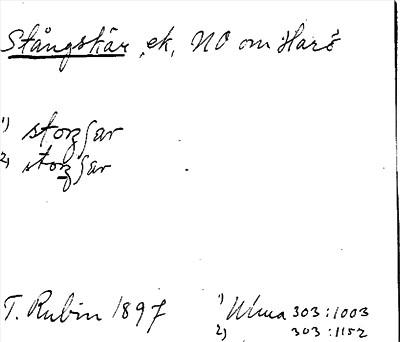 Stångskär, ek, NO om Harö
1) stoŋʃar
2) stoŋʃar
T. Rubin 1897
1) Ulma 303:1003
2) 303:1152